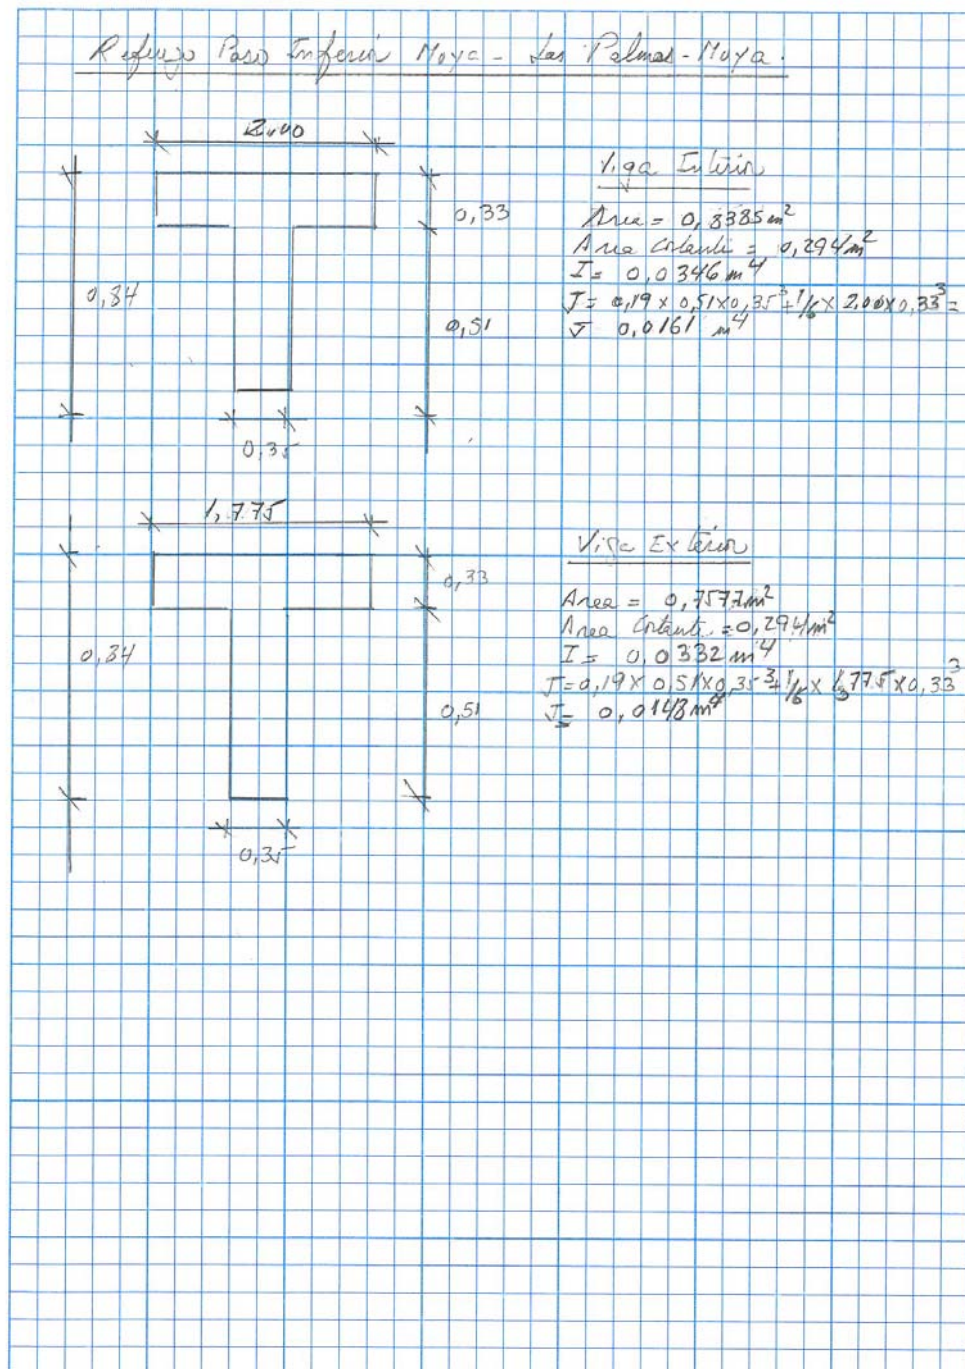 Refuerzo Paso Inferior Moya - Las Palmas - Moya.
2,00
0,33
0,84
0,51
0,35
Viga Interior
Area = 0,8385 m²
Area Cortante = 0,294 m²
I = 0,0346 m⁴
J = 0,19 x 0,51 x 0,35³ + 1/6 x 2,00 x 0,33³ =
J 0,0161 m⁴
1,775
0,33
0,84
0,51
0,35
Viga Exterior
Area = 0,7577 m²
Area Cortante = 0,294 m²
I = 0,0332 m⁴
J = 0,19 x 0,51 x 0,35³ + 1/6 x 1,775 x 0,33³
J = 0,0148 m⁴